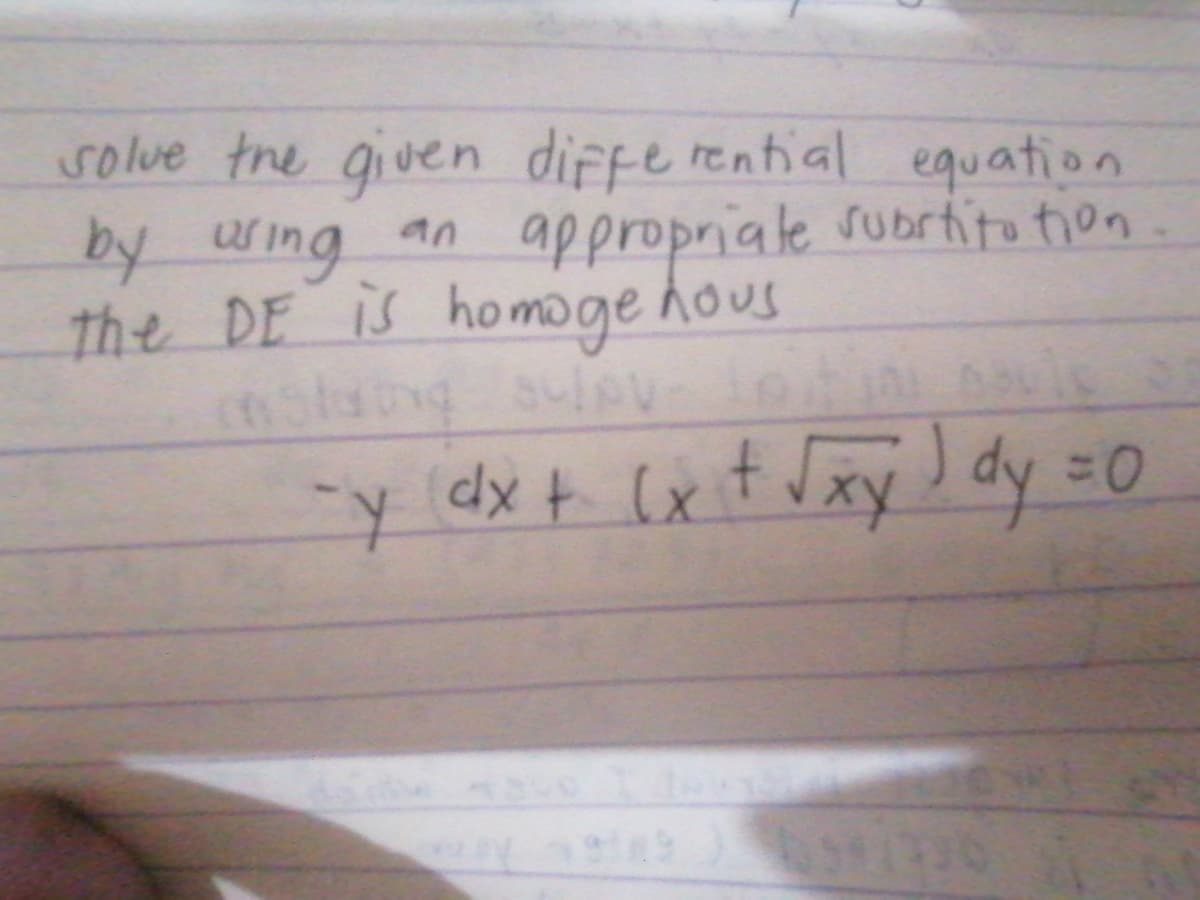 solve the given differential equation
by using an appropriate substitution.
the DE is homogenous
-y dx + (x + √xy) dy = 0